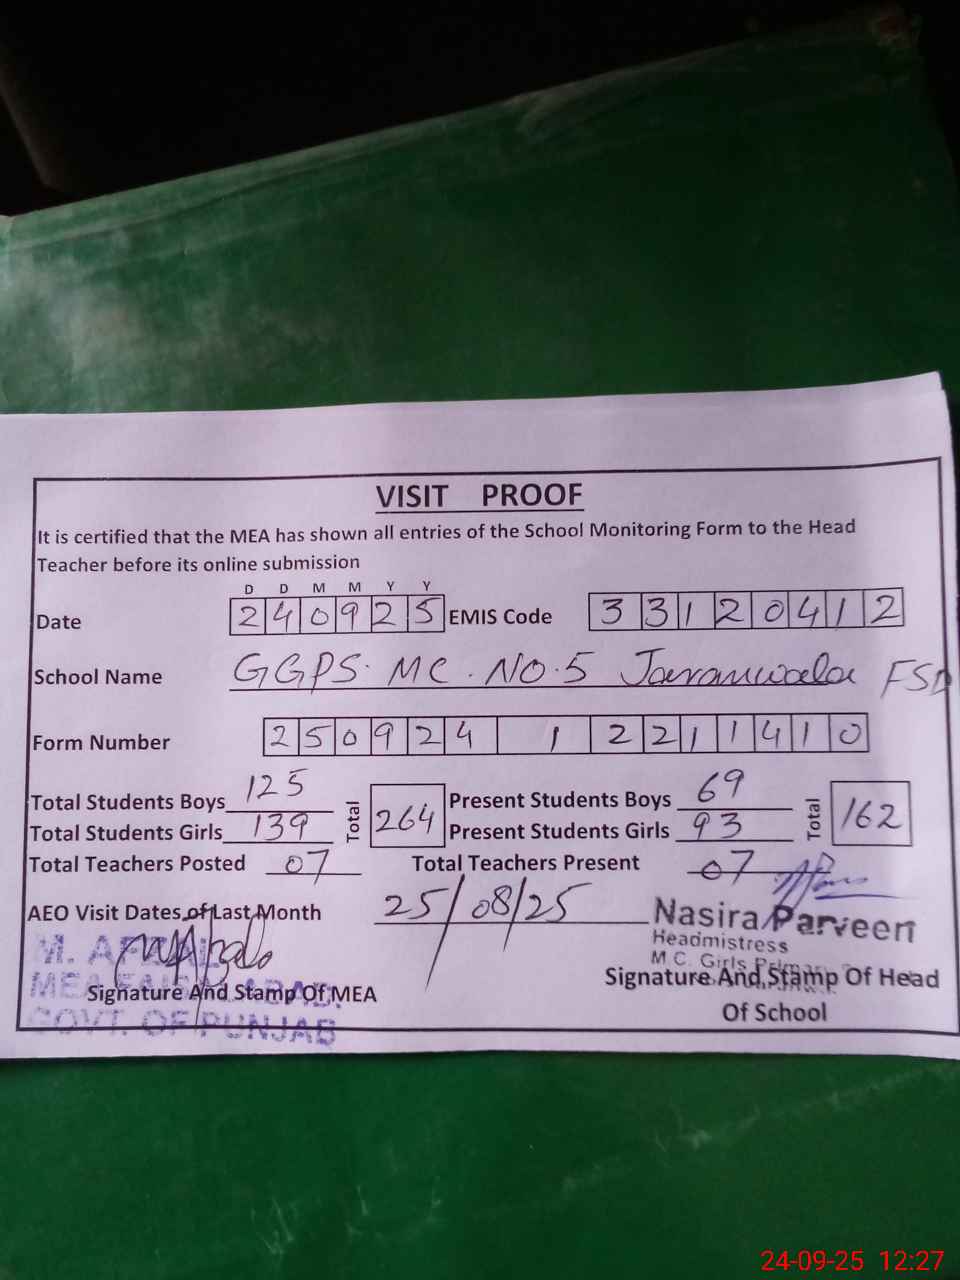 VISIT PROOF
It is certified that the MEA has shown all entries of the School Monitoring Form to the Head
Teacher before its online submission
D D M M Y Y
Date 2 4 0 9 2 5 EMIS Code 3 3 1 2 0 4 1 2
School Name GGPS. MC. NO.5 Jaranwala FSD
Form Number 2 5 0 9 2 4 1 2 2 1 1 4 1 0
Total Students Boys 125 Total 264 Present Students Boys 69 Total 162
Total Students Girls 139 Present Students Girls 93
Total Teachers Posted 07 Total Teachers Present 07
AEO Visit Dates of Last Month 25/08/25
Nasira Parveen
Headmistress
M.C. Girls
M. AFZAL
MEA FAISALABAD.
GOVT. OF PUNJAB
Signature And Stamp Of MEA
Signature And Stamp Of Head
Of School
24-09-25 12:27